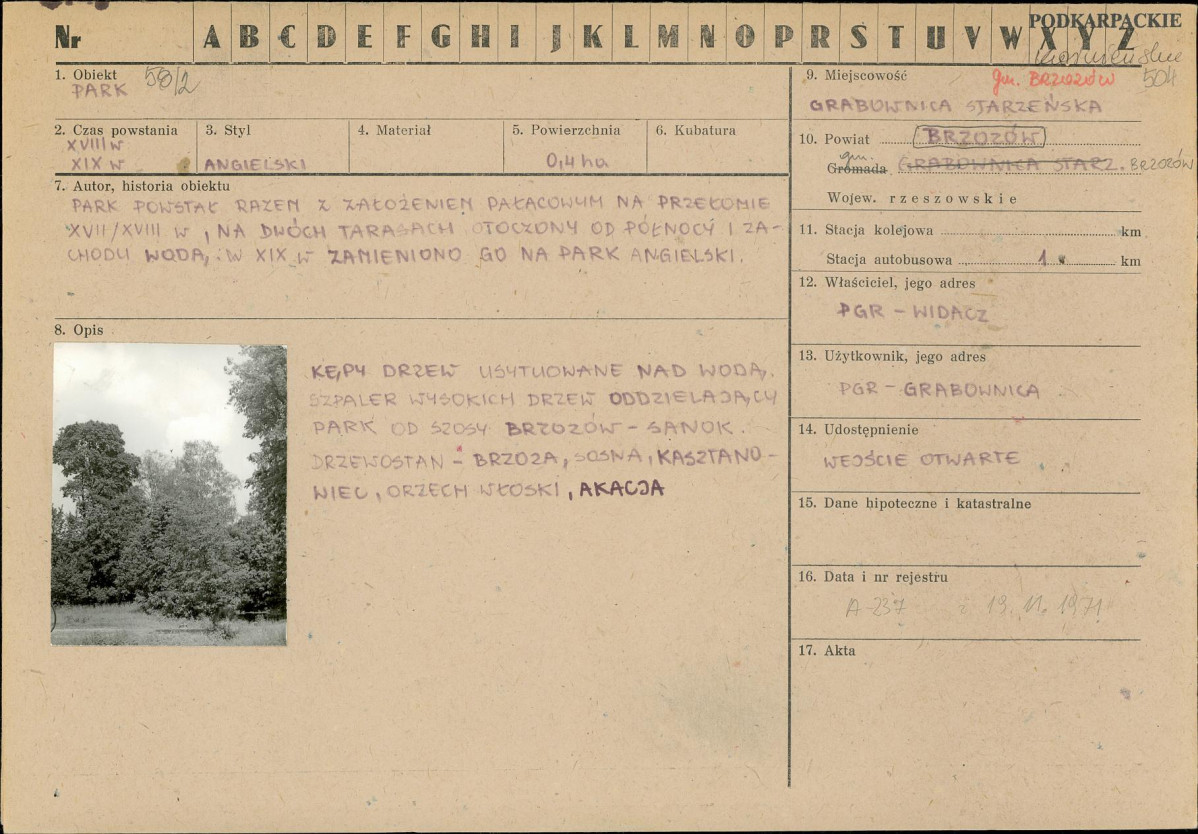 Nr A B C D E F G H I J K L M N O P R S T U V W X Y Z
PODKARPACKIE
1. Obiekt
PARK
2. Czas powstania
XVIII W
XIX W
3. Styl
ANGIELSKI
4. Materiał
5. Powierzchnia
0,4 ha
6. Kubatura
7. Autor, historia obiektu
PARK POWSTAŁ RAZEM Z ZAŁOŻENIEM PAŁACOWYM NA PRZEŁOMIE
XVII/XVIII W, NA DWÓCH TARASACH OTOCZONY OD PÓŁNOCY I ZA-
CHODU WODĄ, W XIX W ZAMIENIONO GO NA PARK ANGIELSKI.
8. Opis
KĘPY DRZEW USYTUOWANE NAD WODĄ,
SZPALER WYSOKICH DRZEW ODDZIELAJĄCY
PARK OD SZOSY BRZOZÓW - SANOK.
DRZEWOSTAN - BRZOZA, SOSNA, KASZTANO-
WIEC, ORZECH WŁOSKI, AKACJA
9. Miejscowość
gm. BRZOZÓW
504
GRABOWNICA STARZEŃSKA
10. Powiat BRZOZÓW
gm.
Gromada GRABOWNICA STARZ. BRZOZÓW
Wojew. rzeszowskie
11. Stacja kolejowa km
Stacja autobusowa 1 km
12. Właściciel, jego adres
PGR - WIDACZ
13. Użytkownik, jego adres
PGR - GRABOWNICA
14. Udostępnienie
WEJŚCIE OTWARTE
15. Dane hipoteczne i katastralne
16. Data i nr rejestru
A-237 z 19.11.1971
17. Akta